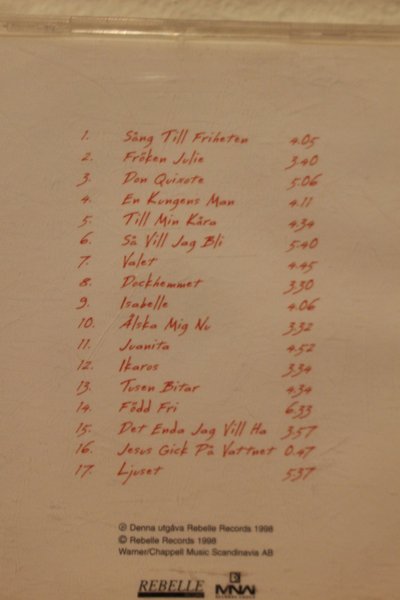 1. Sång Till Friheten 4.05
2. Fröken Julie 3.40
3. Don Quixote 5.06
4. En Kungens Man 4.11
5. Till Min Kära 4.34
6. Så Vill Jag Bli 5.40
7. Valet 4.45
8. Dockhemmet 3.30
9. Isabelle 4.06
10. Älska Mig Nu 3.32
11. Juanita 4.52
12. Ikaros 3.34
13. Tusen Bitar 4.34
14. Född Fri 6.33
15. Det Enda Jag Vill Ha 3.57
16. Jesus Gick På Vattnet 0.47
17. Ljuset 5.37
℗ Denna utgåva Rebelle Records 1998
© Rebelle Records 1998
Warner/Chappell Music Scandinavia AB
REBELLE MNW